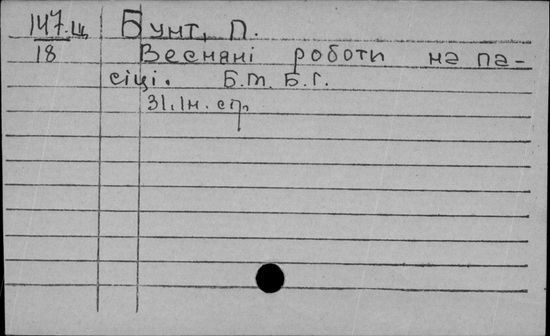 147.Ц. Бунт, П.
18 Весняні роботи на па-
сіці. Б.М. Б.Г.
31.Ін. ст.